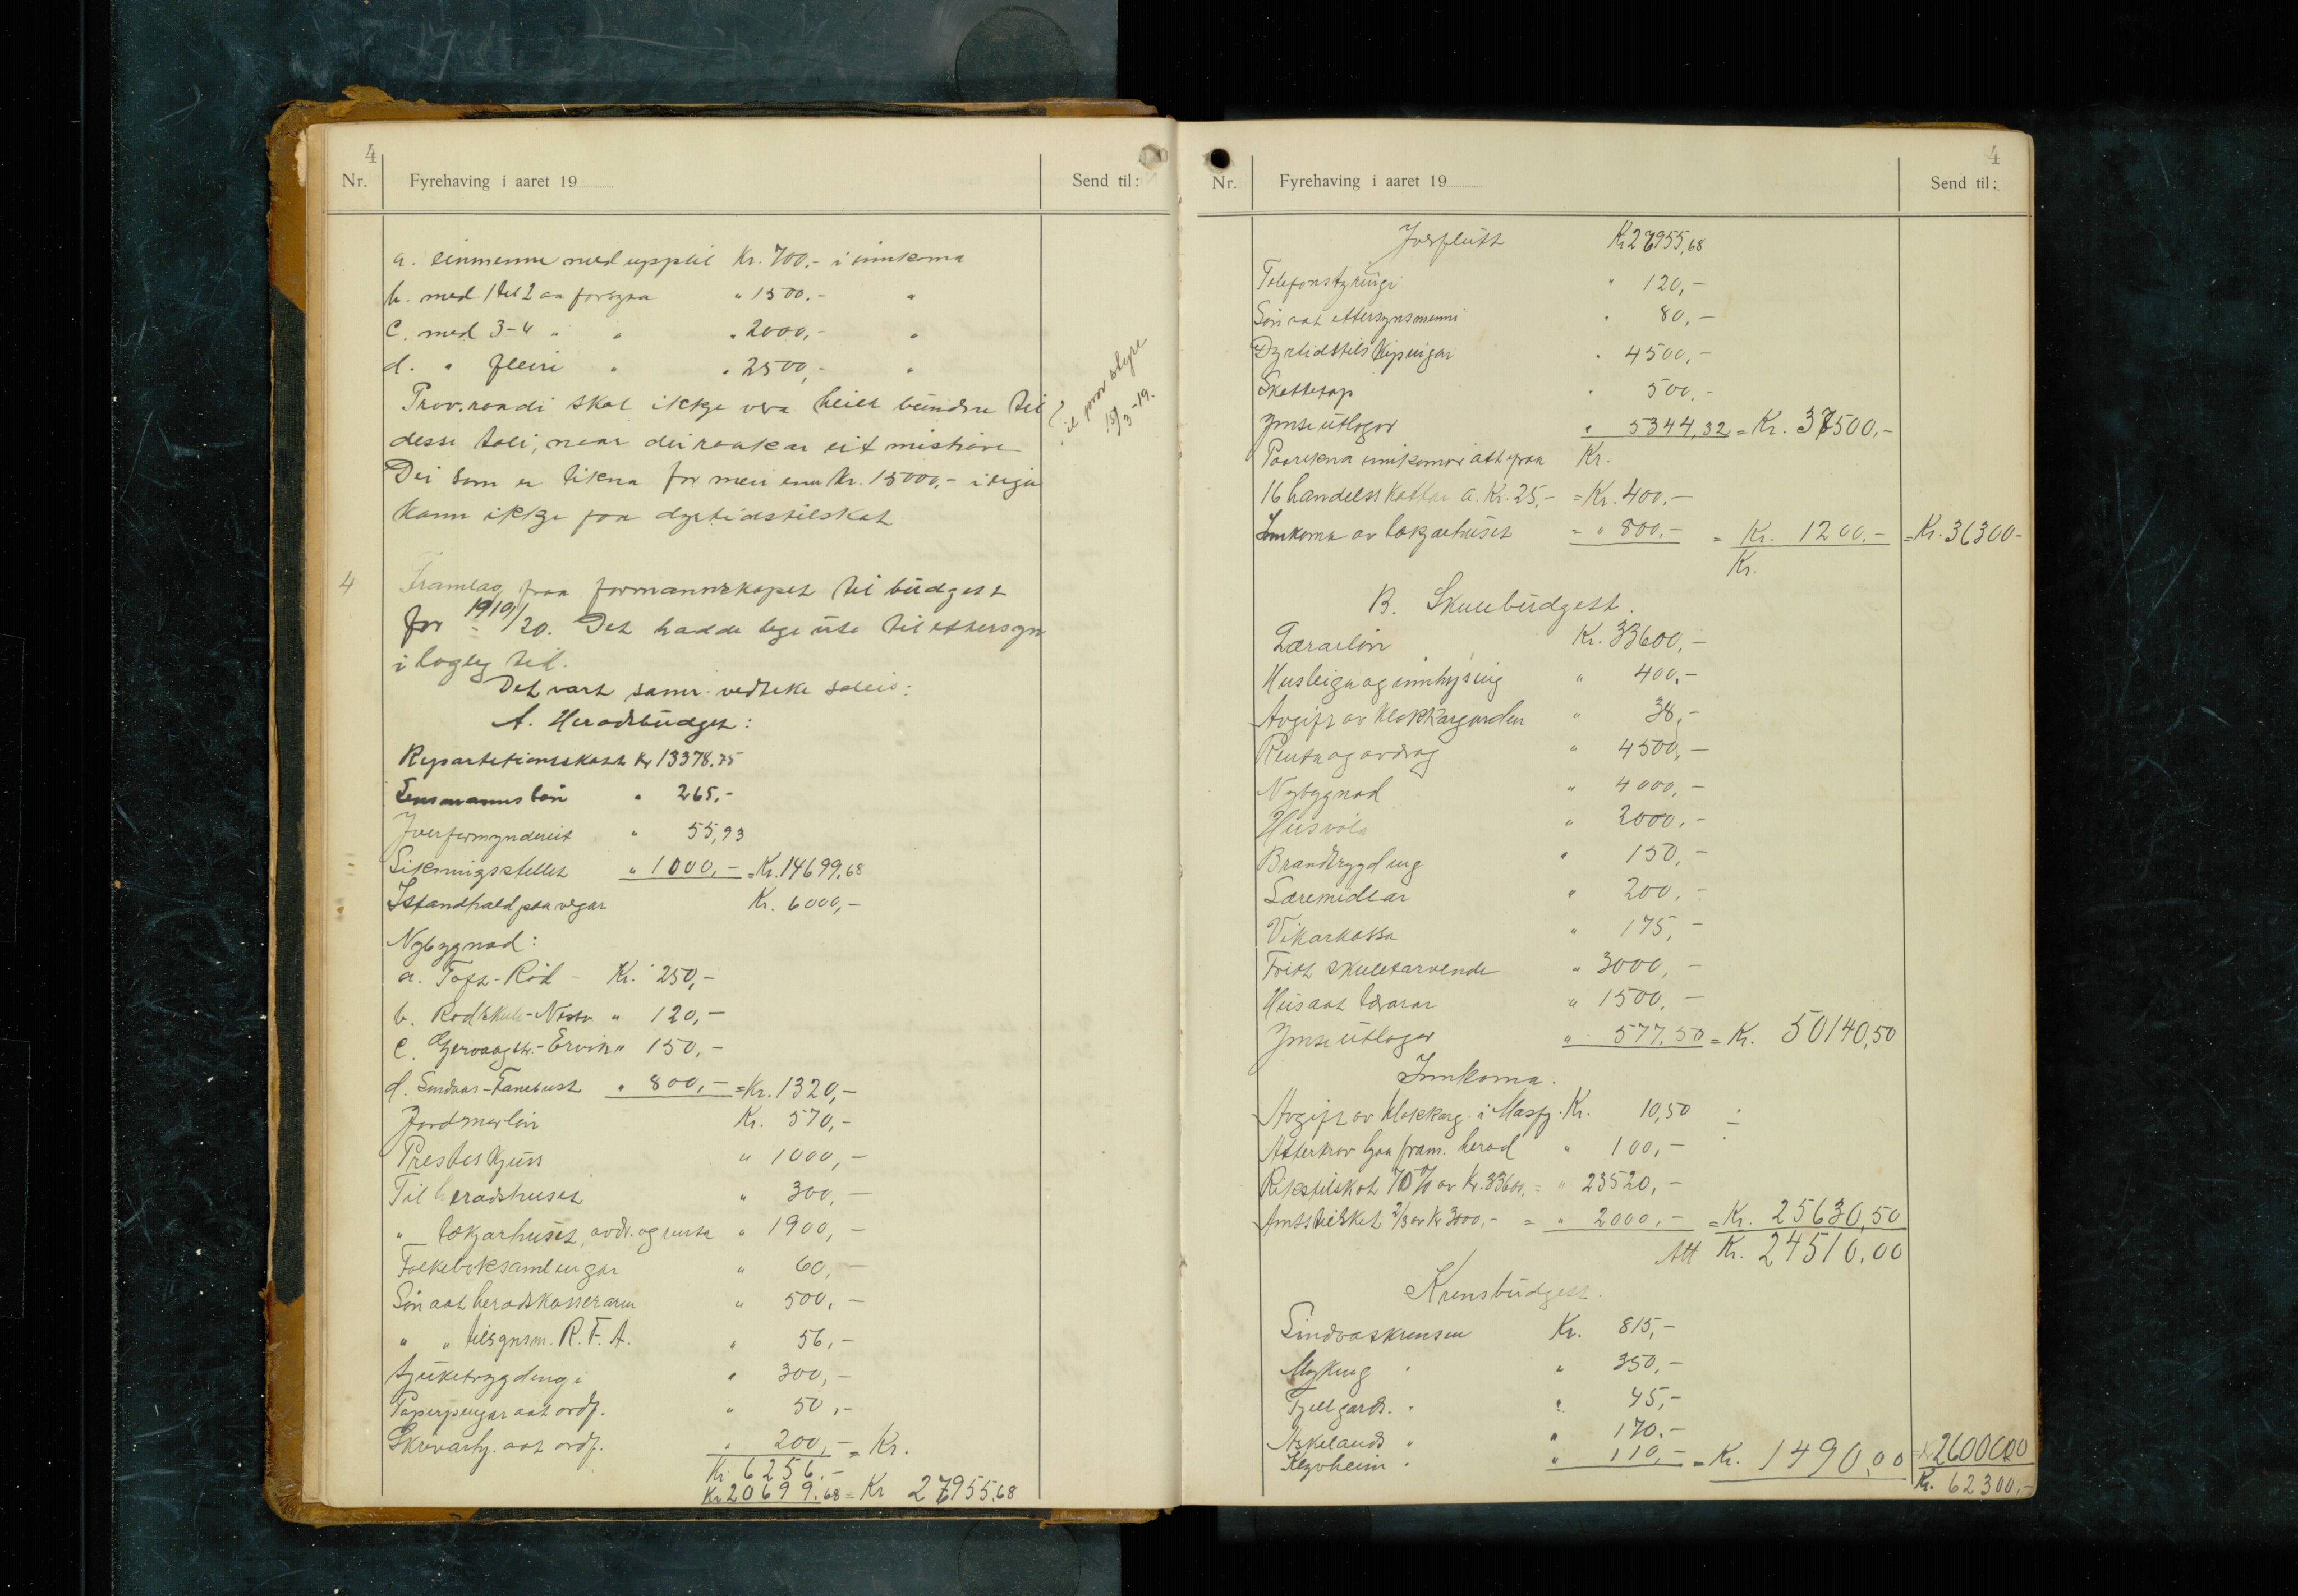 4
Nr. Fyrehaving i aaret 19 Send til:
a. einmenne med upptil Kr. 700.- i innkoma
b. med 1 til 2 aa forsyna " 1500.- "
c. med 3-4 " " " 2000,- "
d. " fleiri " " 2500,- "
Prov.raadi skal ikkje vera heilt bundne til
desse tali, naar dei raakar eit mishøve
Dei som er likna for meir enn Kr. 15000,- i eiga
kann ikkje faa dyrtidstilskot
15/3-19.
4 Framlag fraa formannskapet til budgett
for 1919/20. Det hadde lege ute til ettersyn
i logleg tid.
Det vart samr. vedteke soleis:
A. Heradsbudget:
Repartitionsskatt Kr 13378.75
Lensmannsløn " 265,-
Yverformynderiet " 55,93
Likningsstellet " 1000,- = Kr. 14699.68
Istandhald paa vegar Kr. 6000,-
Nybygnad:
a. Toft-Rød - Kr. 250,-
b. Rødskule-Nesbø " 120,-
c. Gjervaagstr.-Ervik " 150,-
d. Sundaas-Fanebust " 800,- = Kr. 1320,-
Jordmorløn Kr. 570,-
Presteskyss " 1000,-
Til heradshuset " 300,-
" lækjarhuset, avdr. og renta " 1900,-
Folkeboksamlingar " 60,-
Løn aat heradskasseraren " 500,-
" " tilsynsm. R.F.A. " 56,-
Sjuketrygdingi " 300,-
Papirpengar aat ordf. " 50,-
Skrivarhj. aat ordf. " 200,- = Kr.
Kr. 6256.-
Kr 20699.68 = Kr 27955.68
4
Nr. Fyrehaving i aaret 19 Send til:
Yverflutt Kr 27955,68
Telefonstyringi " 120,-
Løn aat ettersynsmenn " 80,-
Dyrtidstilskipingar " 4500,-
Skattetap " 500,-
Ymse utlogor " 5344,32 = Kr. 37500,-
Paarekna innkomor att fraa Kr.
16 handelsskattar a. Kr. 25,- = Kr. 400,-
Innkoma av lækjarhuset = " 800,- = Kr. 1200.- = Kr. 36300-
Kr.
B. Skulebudgett.
Lærarløn Kr. 33600,-
Husleiga og innhysing " 400,-
Avgift av klokkargarden " 38,-
Renta og avdrag " 4500,-
Nybygnad " 4000,-
Husvøla " 2000,-
Brandtrygding " 150,-
Læremidlar " 200,-
Vikarkassa " 175,-
Fritt skuletarvende " 3000,-
Hus aat lærarar " 1500,-
Ymse utlogor " 577,50 = Kr. 50140,50
Innkoma.
Avgift av klokkarg. i Masfj. Kr. 10,50
Atterkrav hjaa fram. herad " 100,-
Rikstilskot 70% av Kr. 33600,- = " 23520,-
Amtstilskot 2/3 av Kr 3000,- = " 2000,- = Kr. 25630,50
Att Kr. 24510,00
Krinsbudgett.
Lindaaskrinsen Kr. 815,-
Myking " " 350,-
Fjellgards. " " 45,-
Askelands " " 170.-
Kleivheim " " 110,- = Kr. 1490,00 = Kr 26000,00
Kr. 62300,-